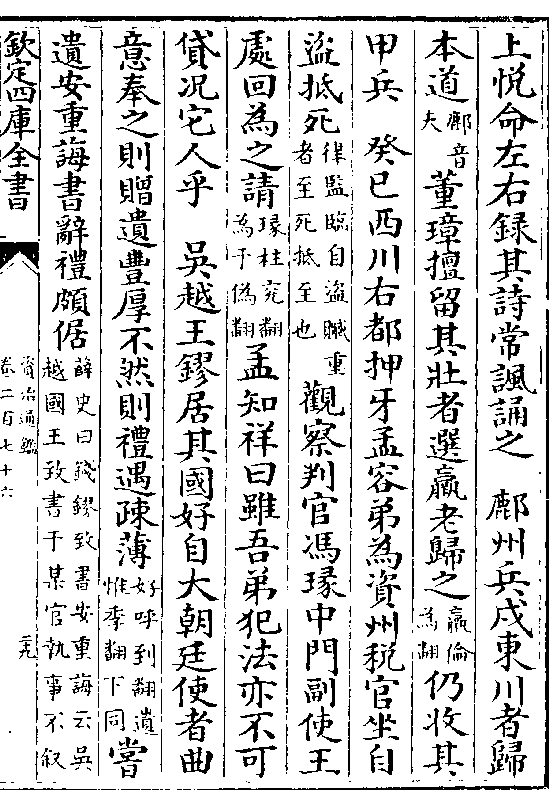 上悦命左右録其詩常諷誦之　鄜州兵戍東川者歸
本道鄜音夫董璋擅留其壯者選羸老歸之羸倫為翻仍收其
甲兵　癸巳西川右都押牙孟容弟為資州税官坐自
盜抵死律監臨自盜贓重者至死抵至也觀察判官馮瑑中門副使王
處回為之請瑑柱兖翻為于偽翻孟知祥曰雖吾弟犯法亦不可
貸况它人乎　吳越王鏐居其國好自大朝廷使者曲
意奉之則贈遺豐厚不然則禮遇疎薄好呼到翻遺惟季翻下同嘗
遺安重誨書辭禮頗倨薛史曰錢鏐致書安重誨云吳越國王致書于某官執事不叙
欽定四庫全書
資治通鑑
卷二百七十六